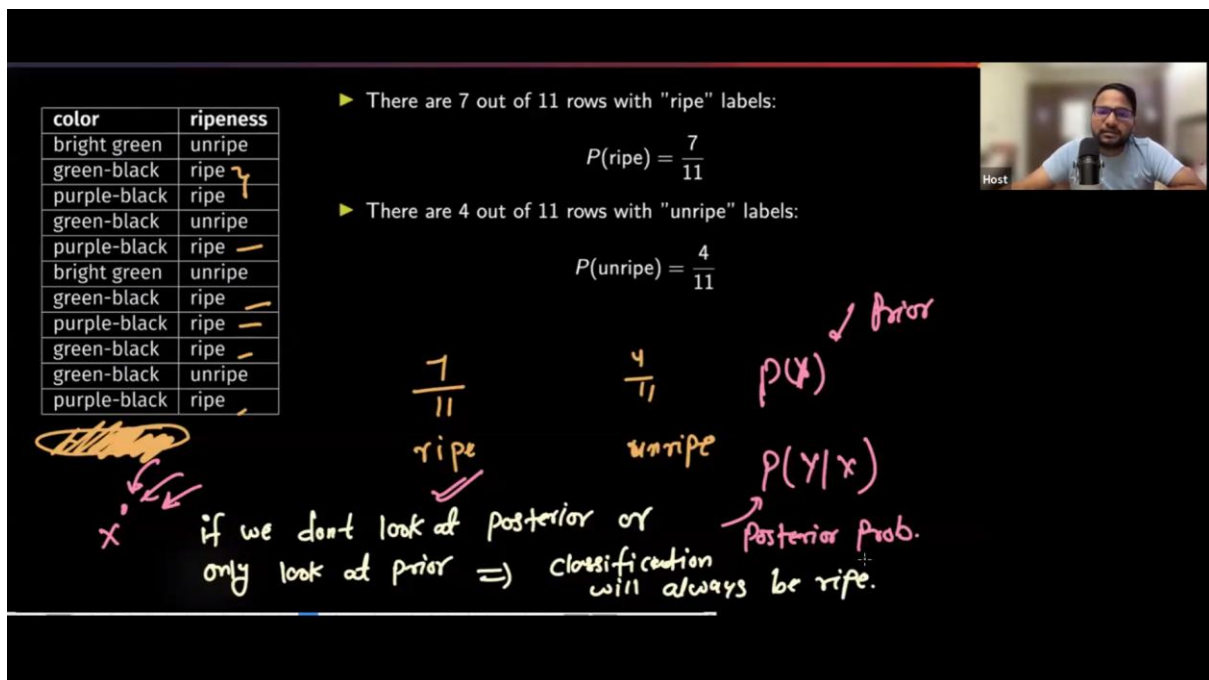 color ripeness
bright green unripe
green-black ripe
purple-black ripe
green-black unripe
purple-black ripe
bright green unripe
green-black ripe
purple-black ripe
green-black ripe
green-black unripe
purple-black ripe
► There are 7 out of 11 rows with "ripe" labels:
P(ripe) = 7/11
► There are 4 out of 11 rows with "unripe" labels:
P(unripe) = 4/11
Host
Prior
P(Y)
7/11
4/11
ripe
unripe
P(Y|X)
Posterior Prob.
X
if we dont look at posterior or
only look at prior => classification
will always be ripe.